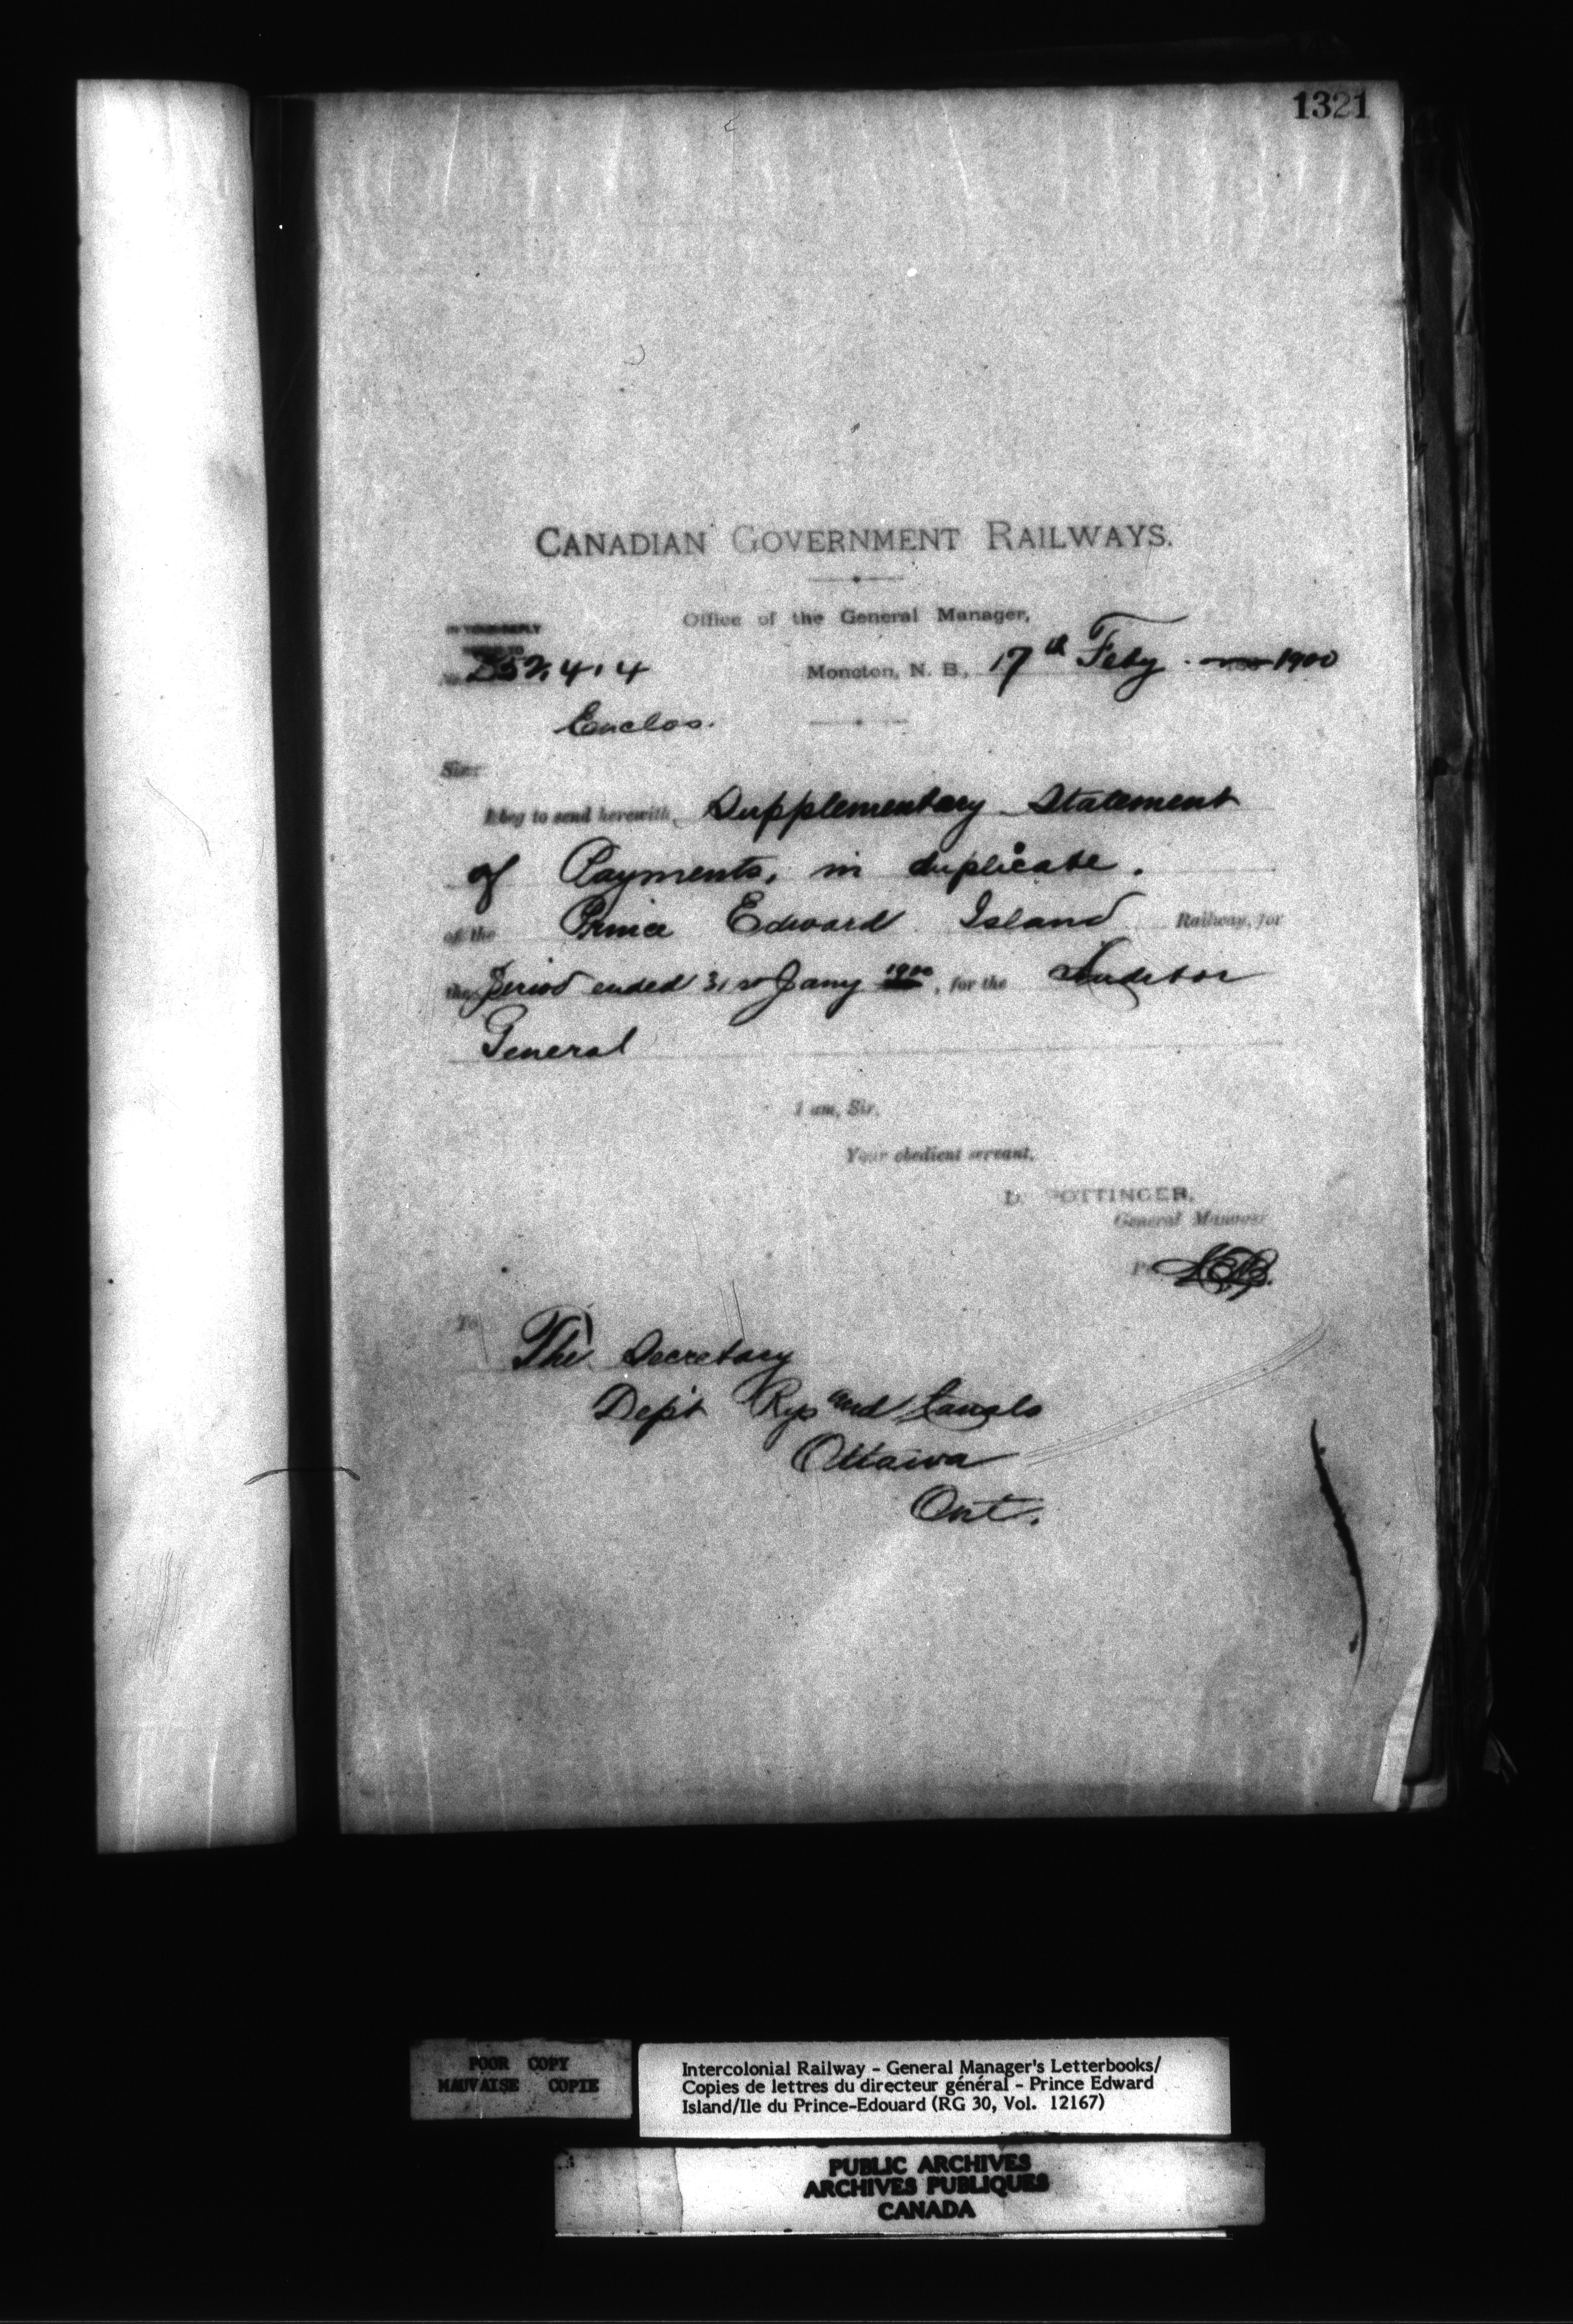 1321
CANADIAN GOVERNMENT RAILWAYS.
Office of the General Manager,
IN YOUR REPLY
REFER TO
No. 252.4.4
Moncton, N. B., 17th Feby. 1900
Enclos.
Sir:
I beg to send herewith, Supplementary Statement
of Payments, in duplicate.
of the Prince Edward Island Railway, for
the period ended 31st Jany 1900, for the Auditor
General
I am, Sir,
Your obedient servant,
D. POTTINGER,
General Manager
Per
To
The Secretary
Dep't Rys and Canals
Ottawa
Ont.
POOR COPY
MAUVAISE COPIE
Intercolonial Railway - General Manager's Letterbooks/
Copies de lettres du directeur général - Prince Edward
Island/Ile du Prince-Edouard (RG 30, Vol. 12167)
PUBLIC ARCHIVES
ARCHIVES PUBLIQUES
CANADA